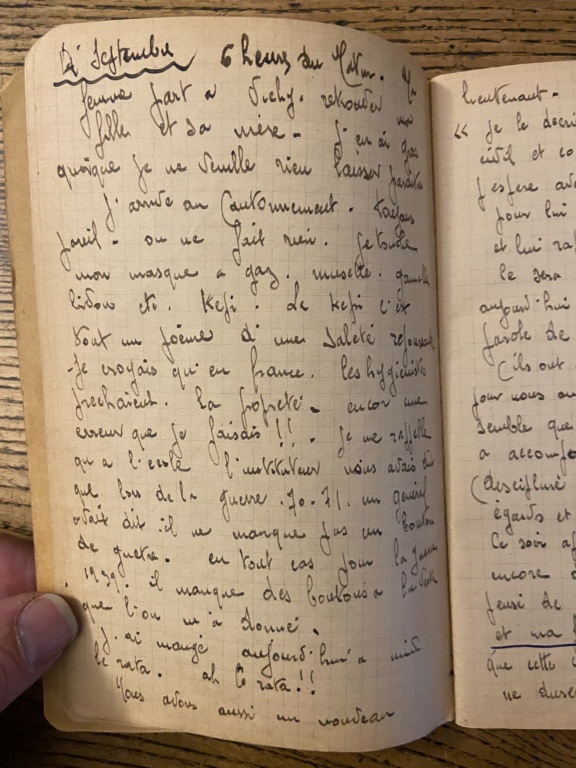 4 Septembre 6 heures du Matin. Ma
femme part a Vichy. retrouver ma
fille et sa mère - J'en ai gros
quoique je ne veuille rien laisser paraitre
J'arrive au Cantonnement. toujours
pareil - on ne fait rien. Je touche
mon masque a gaz. musette. gamelle
bidon etc. Kepi. Le Kepi c'est
tout un poème d'une saleté repoussante
- Je croyais qu'en france. les hygienistes
prechaient. la propreté - encor une
erreur que je faisais !! - Je me rappelle
qu'a l'ecole l'instituteur nous avais dit
que lors de la guerre .70-71. un général
avait dit . il ne manque pas un bouton
de guetre. en tout cas pour la guerre
1939. il manque des boutons a la veste
que l'on m'a donné.
J'ai mangé aujourd'hui a midi
le rata. ah le rata !!
Nous avons aussi un nouveau
lieutenant -
« Je le
civil et
J'espere
pour lui
et lui
le sera
aujourd'hui
parole de
(ils ont
pour nous
semble que
a
(
égards et
Ce soir
encore
pensé de
et ma
que cette
ne